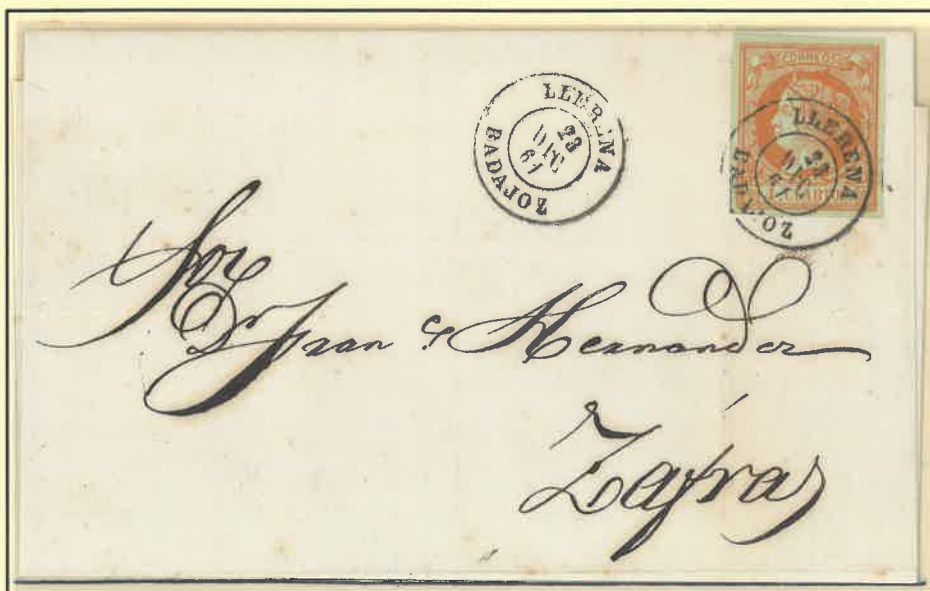 LLERENA
23
DIC
61
BADAJOZ
CORREOS
LLERENA
23
DIC
61
BADAJOZ
Sor
Dn Fran co Hernandez
Zafra